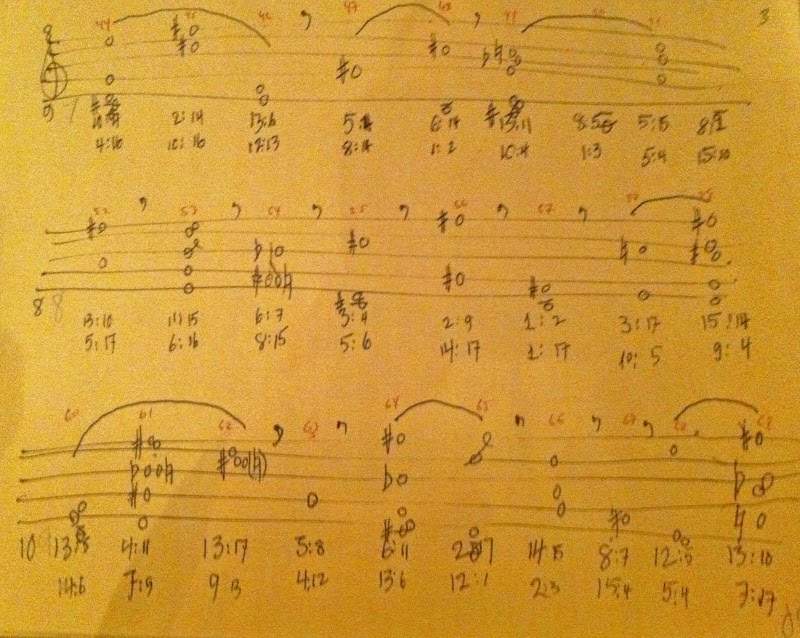 3
44 45 46 47 48 49 50 51
8
2:14 13:6 6:14 13:11 5:15
4:16 10:16 12:13 8:14 1:2 10:4 1:3 5:4 15:10
52 53 54 55 56 57 58 59
8 8
13:10 11:15 6:7 3:4 2:9 1:2 3:17 15:14
5:17 6:16 8:15 5:6 14:17 1:17 10:5 9:4
60 61 62 63 64 65 66 67 68 69
10 4:11 13:17 5:8 6:11 14:15 8:7 12:5 13:10
14:6 7:9 9 13 4:12 13:6 12:1 2:3 15:4 5:4 7:17